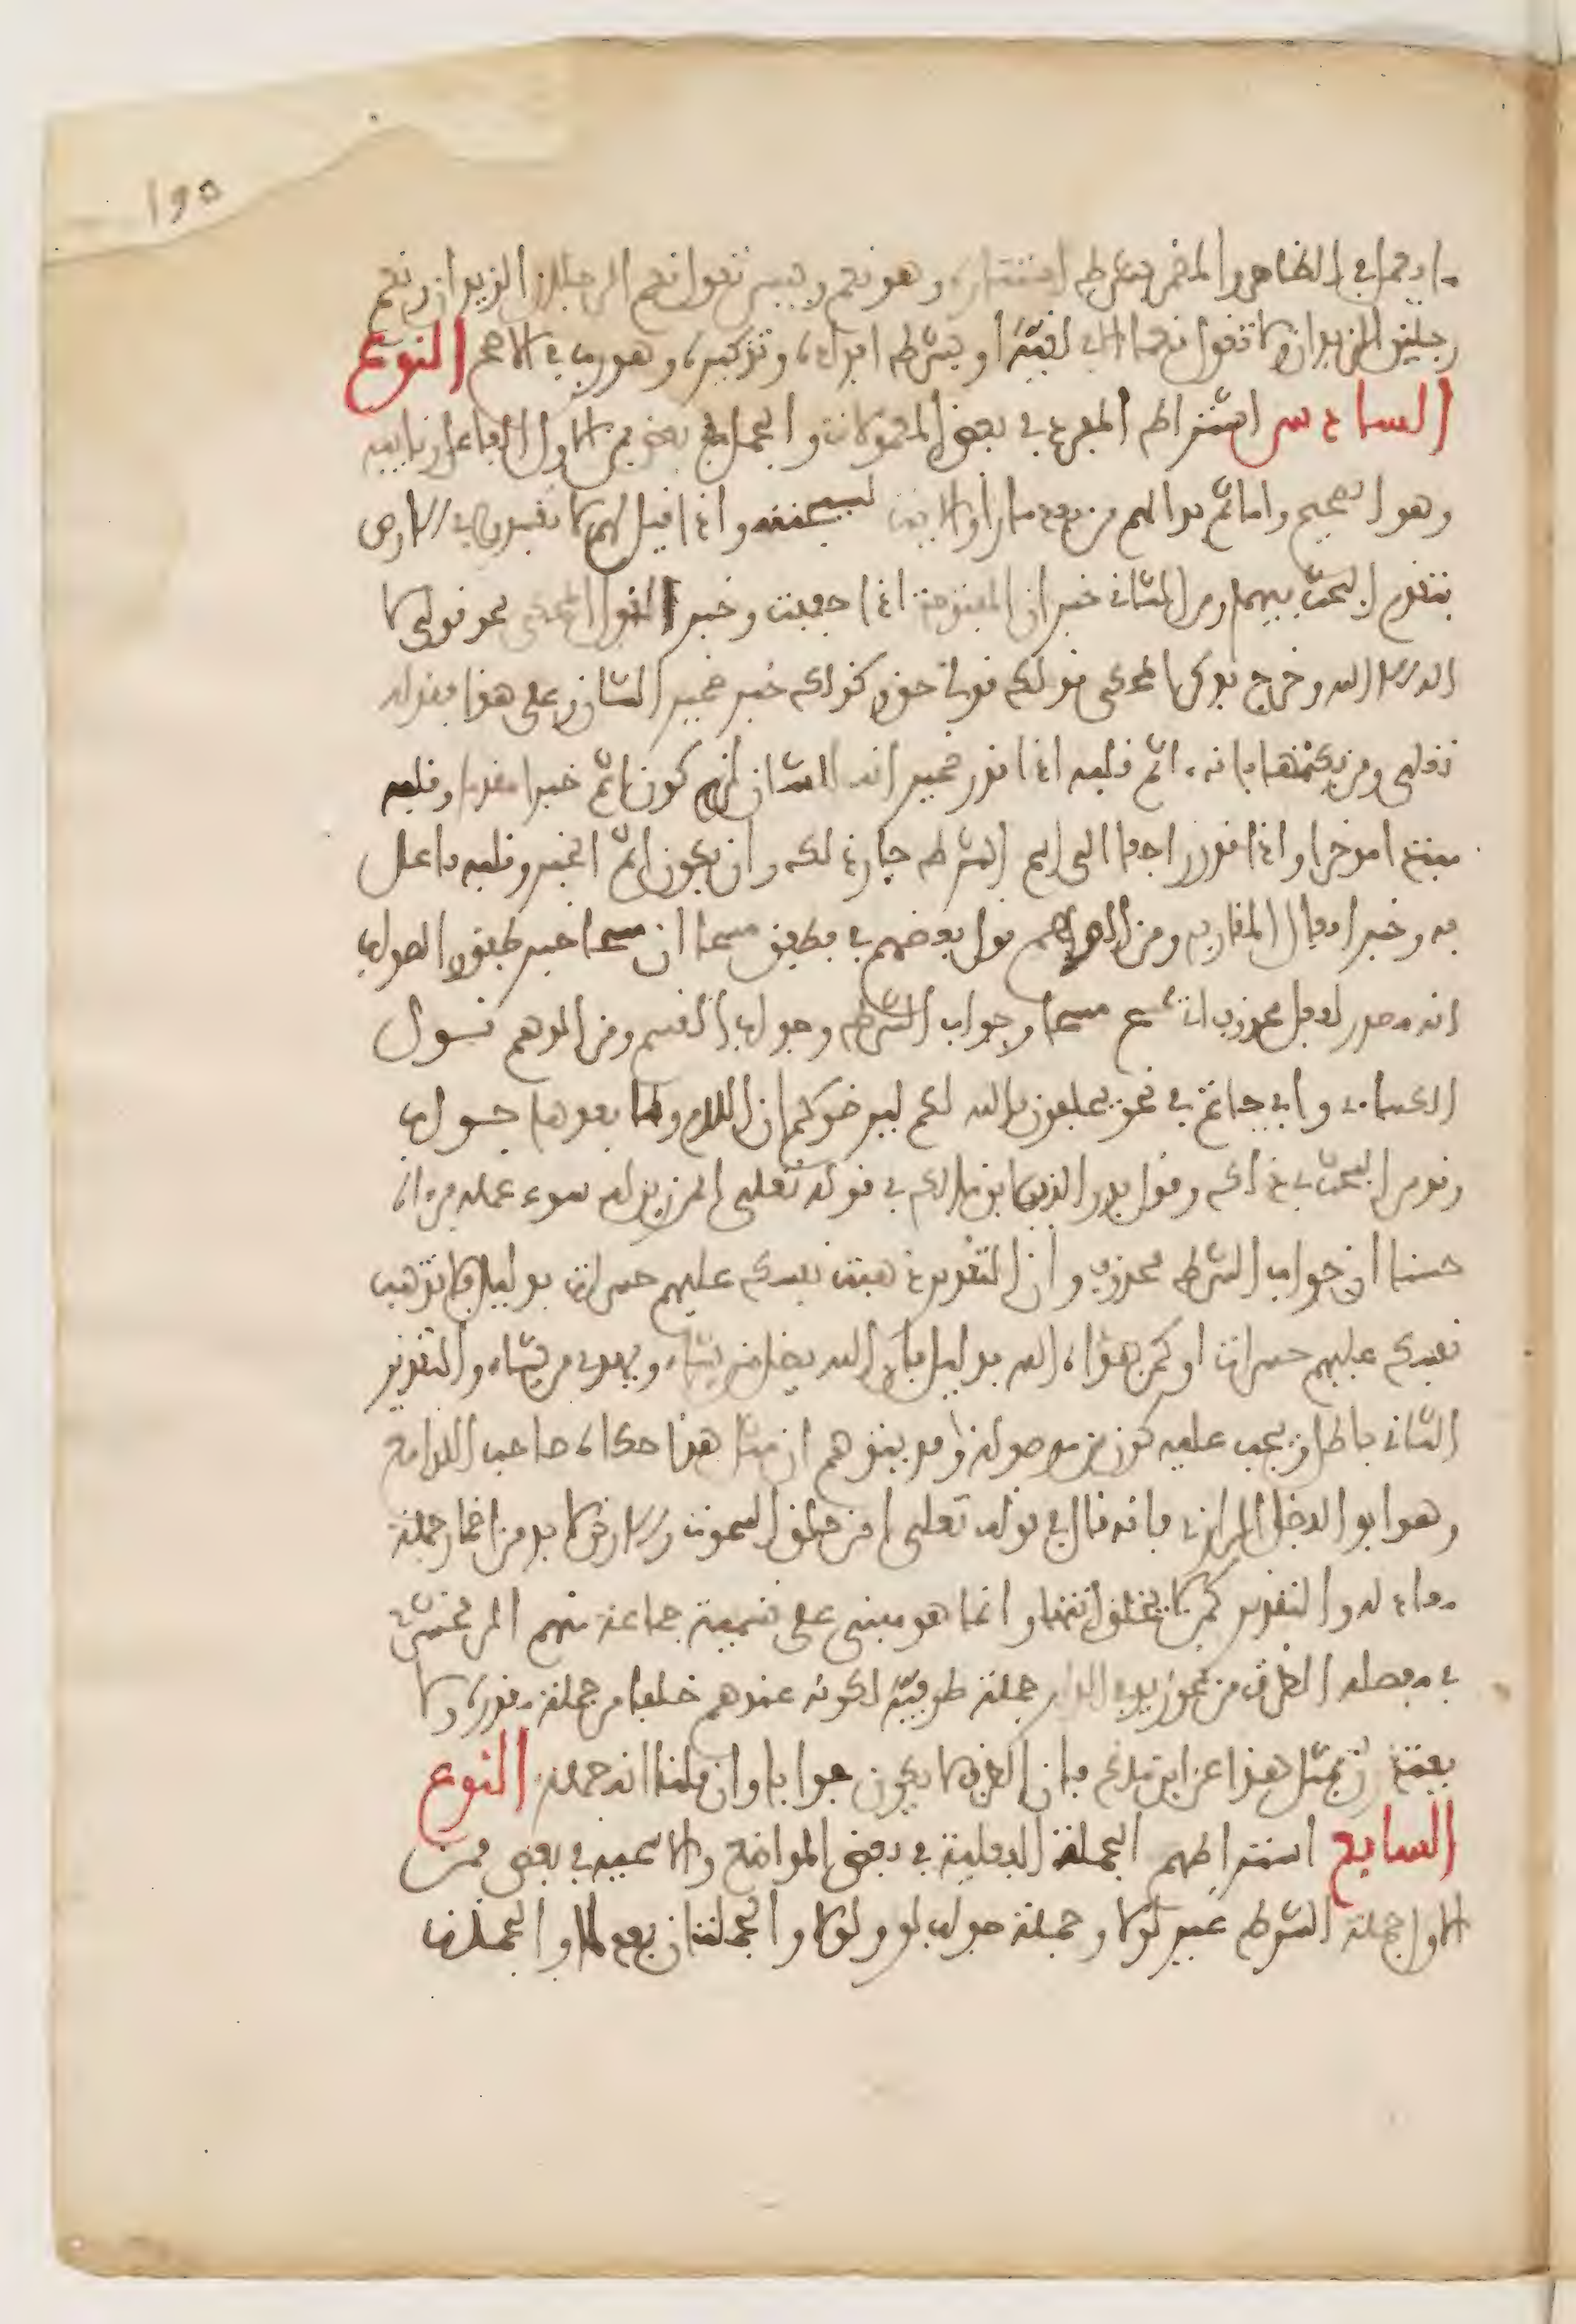 ١٩٥
ما يعمل في الظاهر والمضمر بشرط استتاره وهو نعم وبيس تقول نعم الرجلان الزيدان ونعم
رجلين الزيدان ولا تقول نعما الا في لغية او بشرط افراده وتذكيره وهو رب في الاصح النوع
السادس اشتراطهم المفرد في بعض المعمولات والجملة في بعض فمن الاول الفاعل ونايبه
وهو الصحيح واما ثم بدا لهم من بعد ما رأوا الايت ليسجننه واذا قيل لهم لا تفسدوا في الارض
فتقدم البحث فيهما ومن الثاني خبر ان المفتوحة اذا خففت وخبر القول المحكي نحو قولي لا
اله الا الله وخرج بذكر المحكي قولك قولي حق وكذلك خبر ضمير الشان وعلى هذا فقوله
تعلى ومن يكتمها فانه اثم قلبه اذا قدر ضمير انه للشان لزم كون اثم خبرا مقدما وقلبه
مبتدا موخرا واذا قدر راجعا الى اسم الشرط جاز ذلك وان يكون اثم الخبر وقلبه فاعل
به وخبر افعال المقاربه ومن الوهم قول بعضهم في فطفق مسحا ان مسحا خبر طفق والصواب
انه مصدر لفعل محذوف اي يمسح مسحا وجواب الشرط وجواب القسم ومن الوهم قول
الكسائي وابي حاتم في نحو يحلفون بالله لكم ليرضوكم ان اللام وما بعدها جواب
وقدم البحث في ذلك وقول بدر الدين ابن مالك في قوله تعلى افمن زين له سوء عمله فرءاه
حسنا ان جواب الشرط محذوف وان التقدير ذهبت نفسك عليهم حسرات بدليل فلا تذهب
نفسك عليهم حسرات او كمن هداه الله بدليل فان الله يضل من يشاء ويهدي من يشاء والتقدير
الثاني باطل ويجب عليه كون من موصولة وقد يتوهم ان مثل هذا حكاه صاحب اللوامع
وهو ابو الفضل الرازي فانه قال في قوله تعلى امن خلق السموت والارض لا بد من اضمار جملة
معادله والتقدير كمن لا يخلق انتهى وانما هو مبني على تسمية جماعة منهم الزمخشري
في مفصله الظرف من نحو زيد في الدار جملة ظرفية لكونه عندهم خلفا من جملة مقدره ولا
يعتذر بمثل هذا عن ابن مالك فان الظرف لا يكون جوابا وان قلنا انه جملة النوع
السابع اشتراطهم الجملة الفعلية في بعض المواضع والاسمية في بعض فمن
الاول جملة الشرط غير لولا وجملة جواب لو ولولا والجملتان بعد لما والجملات